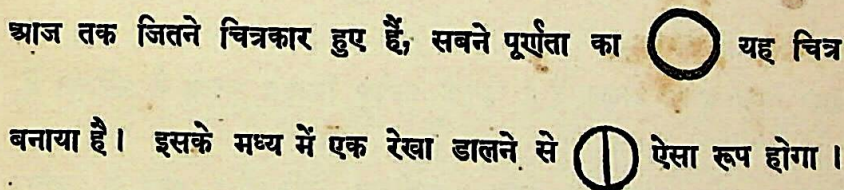 आज तक जितने चित्रकार हुए हैं, सबने पूर्णता का ◯ यह चित्र
बनाया है। इसके मध्य में एक रेखा डालने से ⦶ ऐसा रूप होगा ।